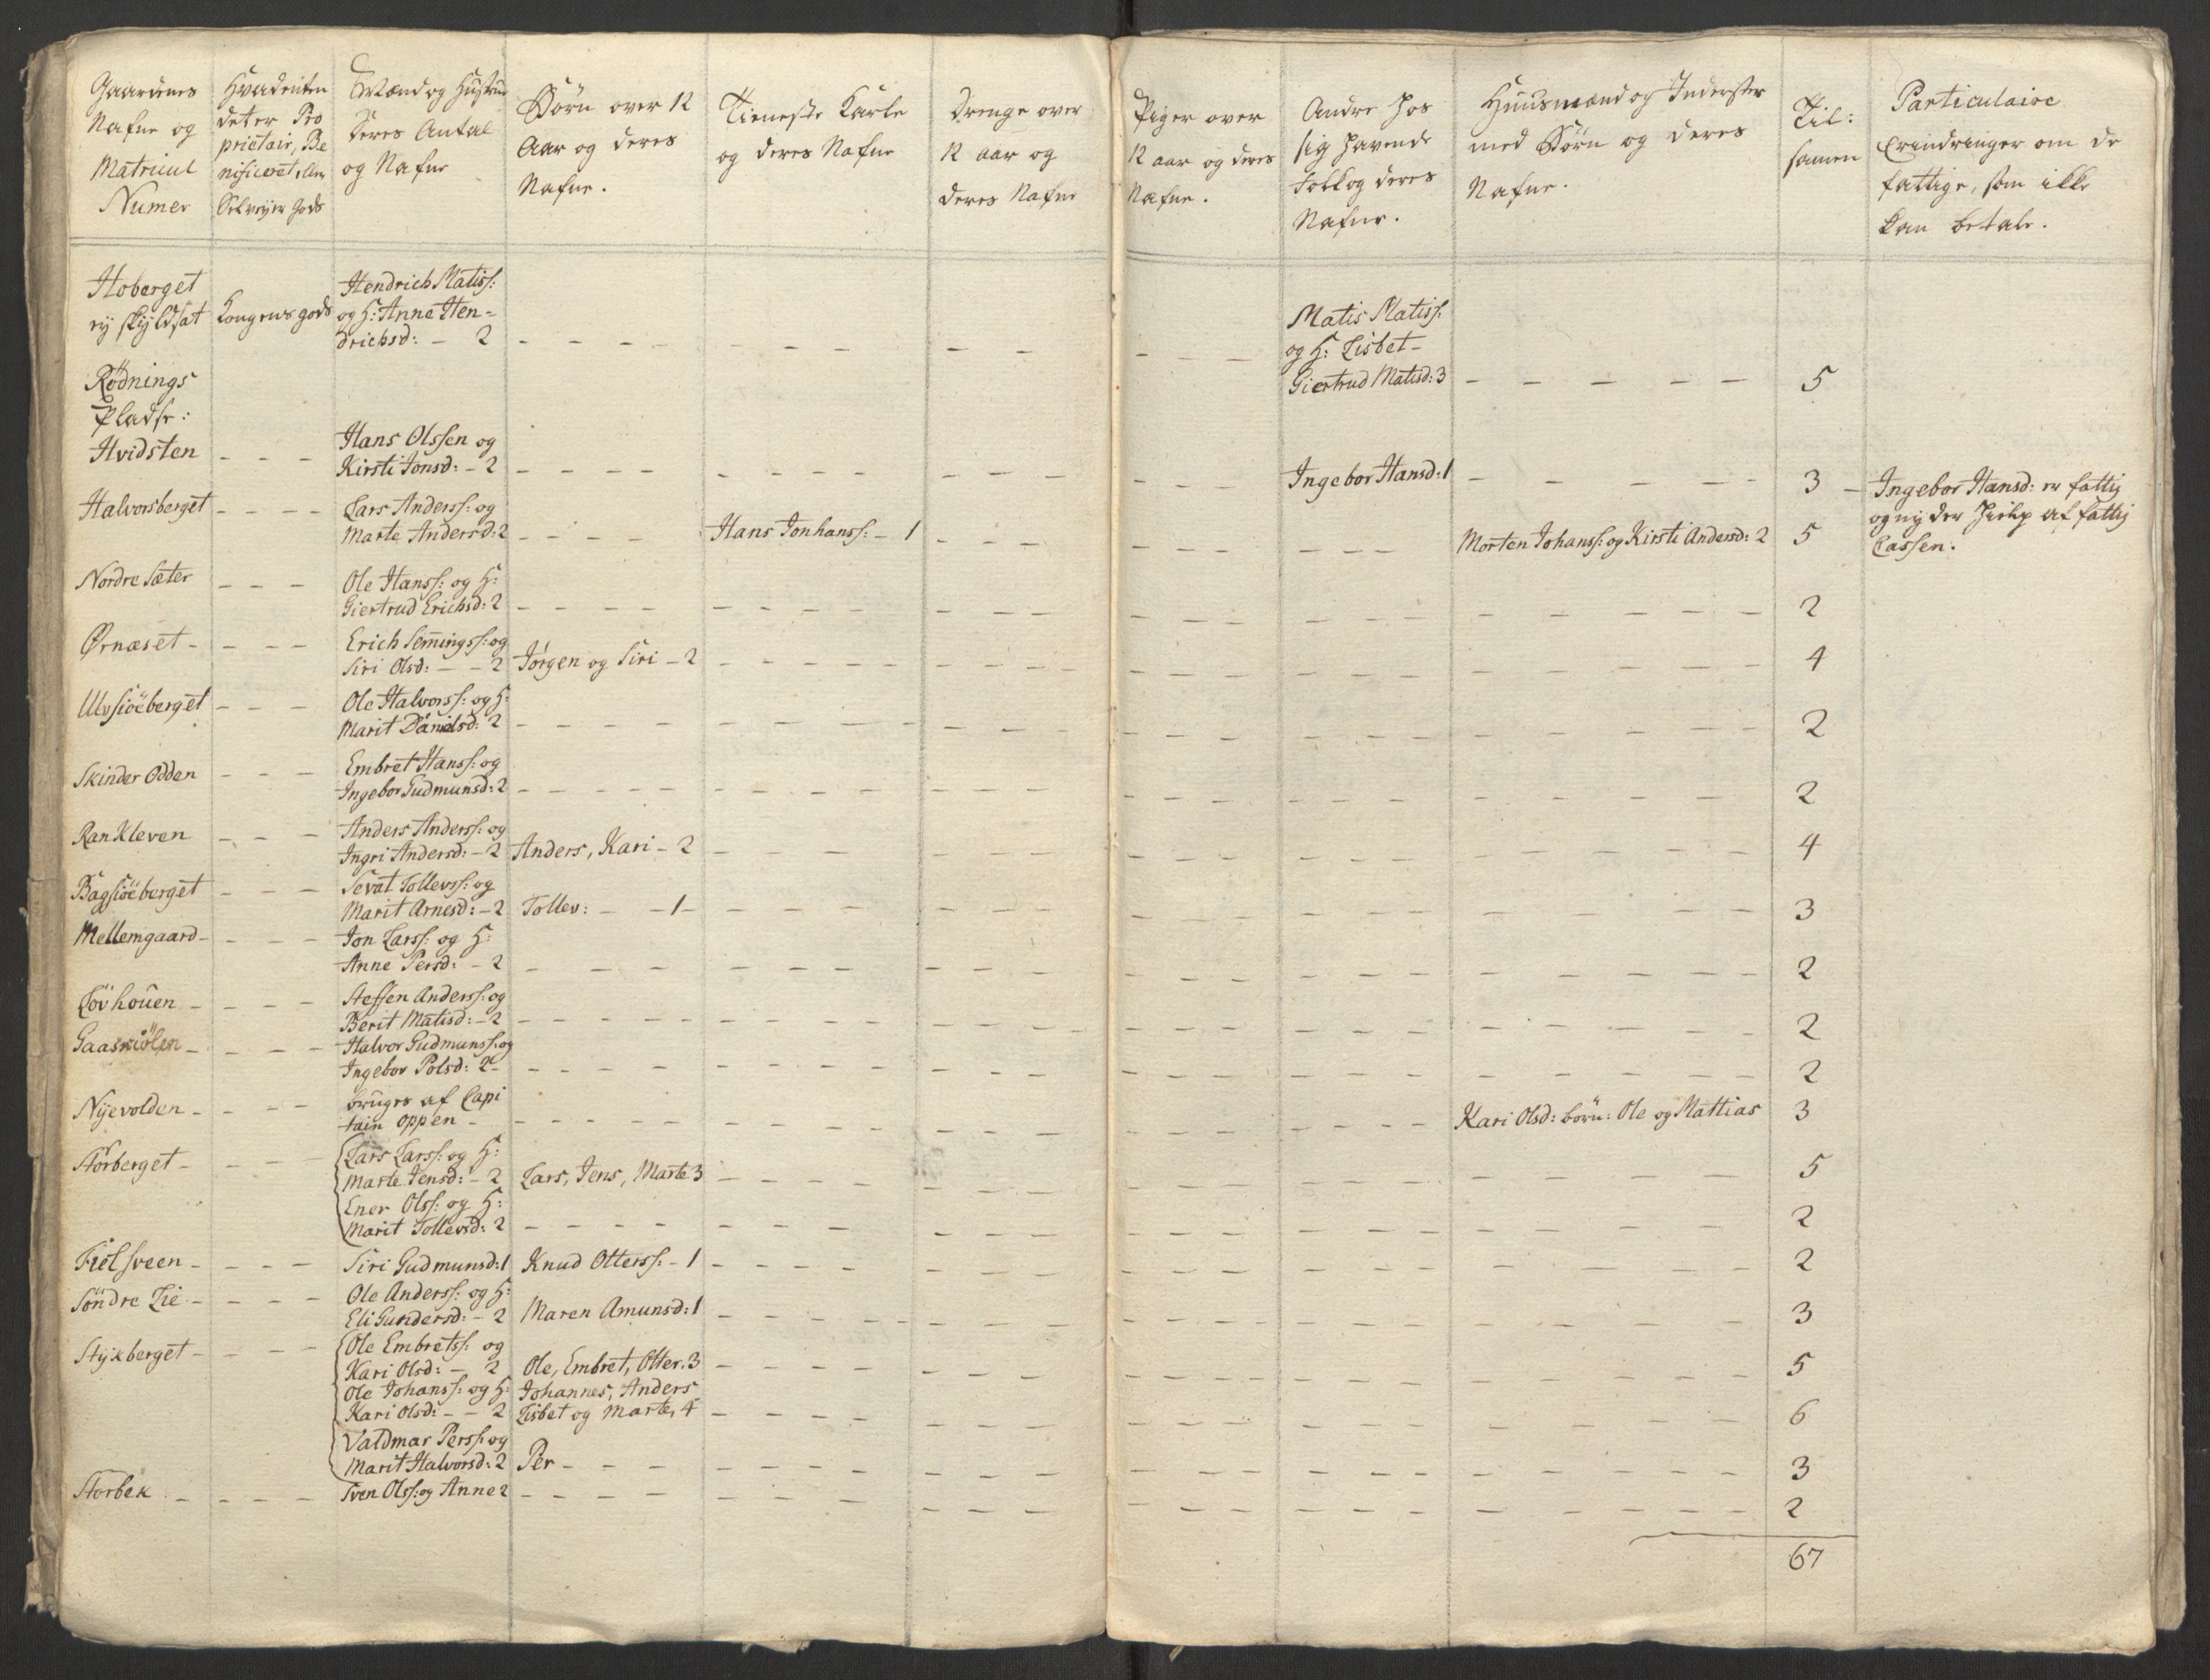 Gaardenes Nafne og Matricul Numer
Hvadenten det er Proprietair, Beneficeret, eller Selveyer Gods
Mænd og Hustruer Deres Antal og Nafne
Børn over 12 Aar og deres Nafne.
Tieneste Karle og deres Nafne
Drenge over 12 aar og deres Nafne
Piger over 12 aar og deres Nafne.
Andre hos sig havende Folk og deres Nafne.
Huusmænd og Inderster med Børn og deres Nafne.
Til: samen
Particulaire Erindringer om de fattige, som ikke kan betale.
Hoberget
Hendrich Matiss:
ny skyldsat Kongens gods og H: Anne Hen-
Matis Matiss:
drichsd: - 2
og H: Lisbet -
Rødnings
Giertrud Matisd: 3 5
Pladse:
Hans Olssen og
Hvidsten
Kirsti Jonsd: - 2 Ingebor Hansd: 1 3 Ingebor Hansd: er fattig
Halvorsberget Lars Anderss: og
og nyder Hielp af fattig
Marte Andersd: 2 Hans Jonhanss: - 1 Morten Johanss: og Kirsti Andersd: 2 5 Cassen.
Nordre Sæter Ole Hanss: og H:
Giertrud Erichsd: 2 2
Ørnæset - Erich Semingss: og
Siri Olsd: - - 2 Jørgen og Siri - 2 4
Ulvsiöeberget Ole Halvorss: og H:
Marit Danielsd: 2 2
Skinder Odden Embret Hanss: og
Ingebor Gudmunsd: 2 2
RanKleven Anders Anderss: og
Ingri Andersd: - 2 Anders, Kari - 2 4
Bagsiöeberget Sevat Tollevss: og
Marit Arnesd: - 2 Tollev: - - 1 - 3
Mellemgaard - Jon Larss: og H:
Anne Persd: - 2 2
Lövhouen - Steffen Anderss: og
Berit Matisd: - 2 2
Gaaskiölen - Halvor Gudmunss: og
Ingebor Polsd: 2 - 2
Nyevolden - bruges af Capi
tain Oppen - Kari Olsd: børn: Ole og Mattias 3
Storberget - Lars Larss: og H:
Marte Jensd: - 2 Lars, Jens, Marte 3 5
Ener Olss: og H:
Marit Tollevsd: 2 2
Fielsveen - Siri Gudmunsd: 1 Knud Otterss: - 1 2
Söndre Lie - Ole Anderss: og H:
Eli Gundersd: - 2 Maren Amunsd: 1 3
Stykberget - Ole Embretss: og
Kari Olsd: - 2 Ole, Embret, Otter. 3 5
Ole Johanss: og H: Johannes, Anders
Kari Olsd: - - 2 Lisbet og Marte, 4 6
Valdmar Perss: og
Marit Halvorsd: 2 Per - 3
Storbek - Sven Olss: og Anne 2 2
67